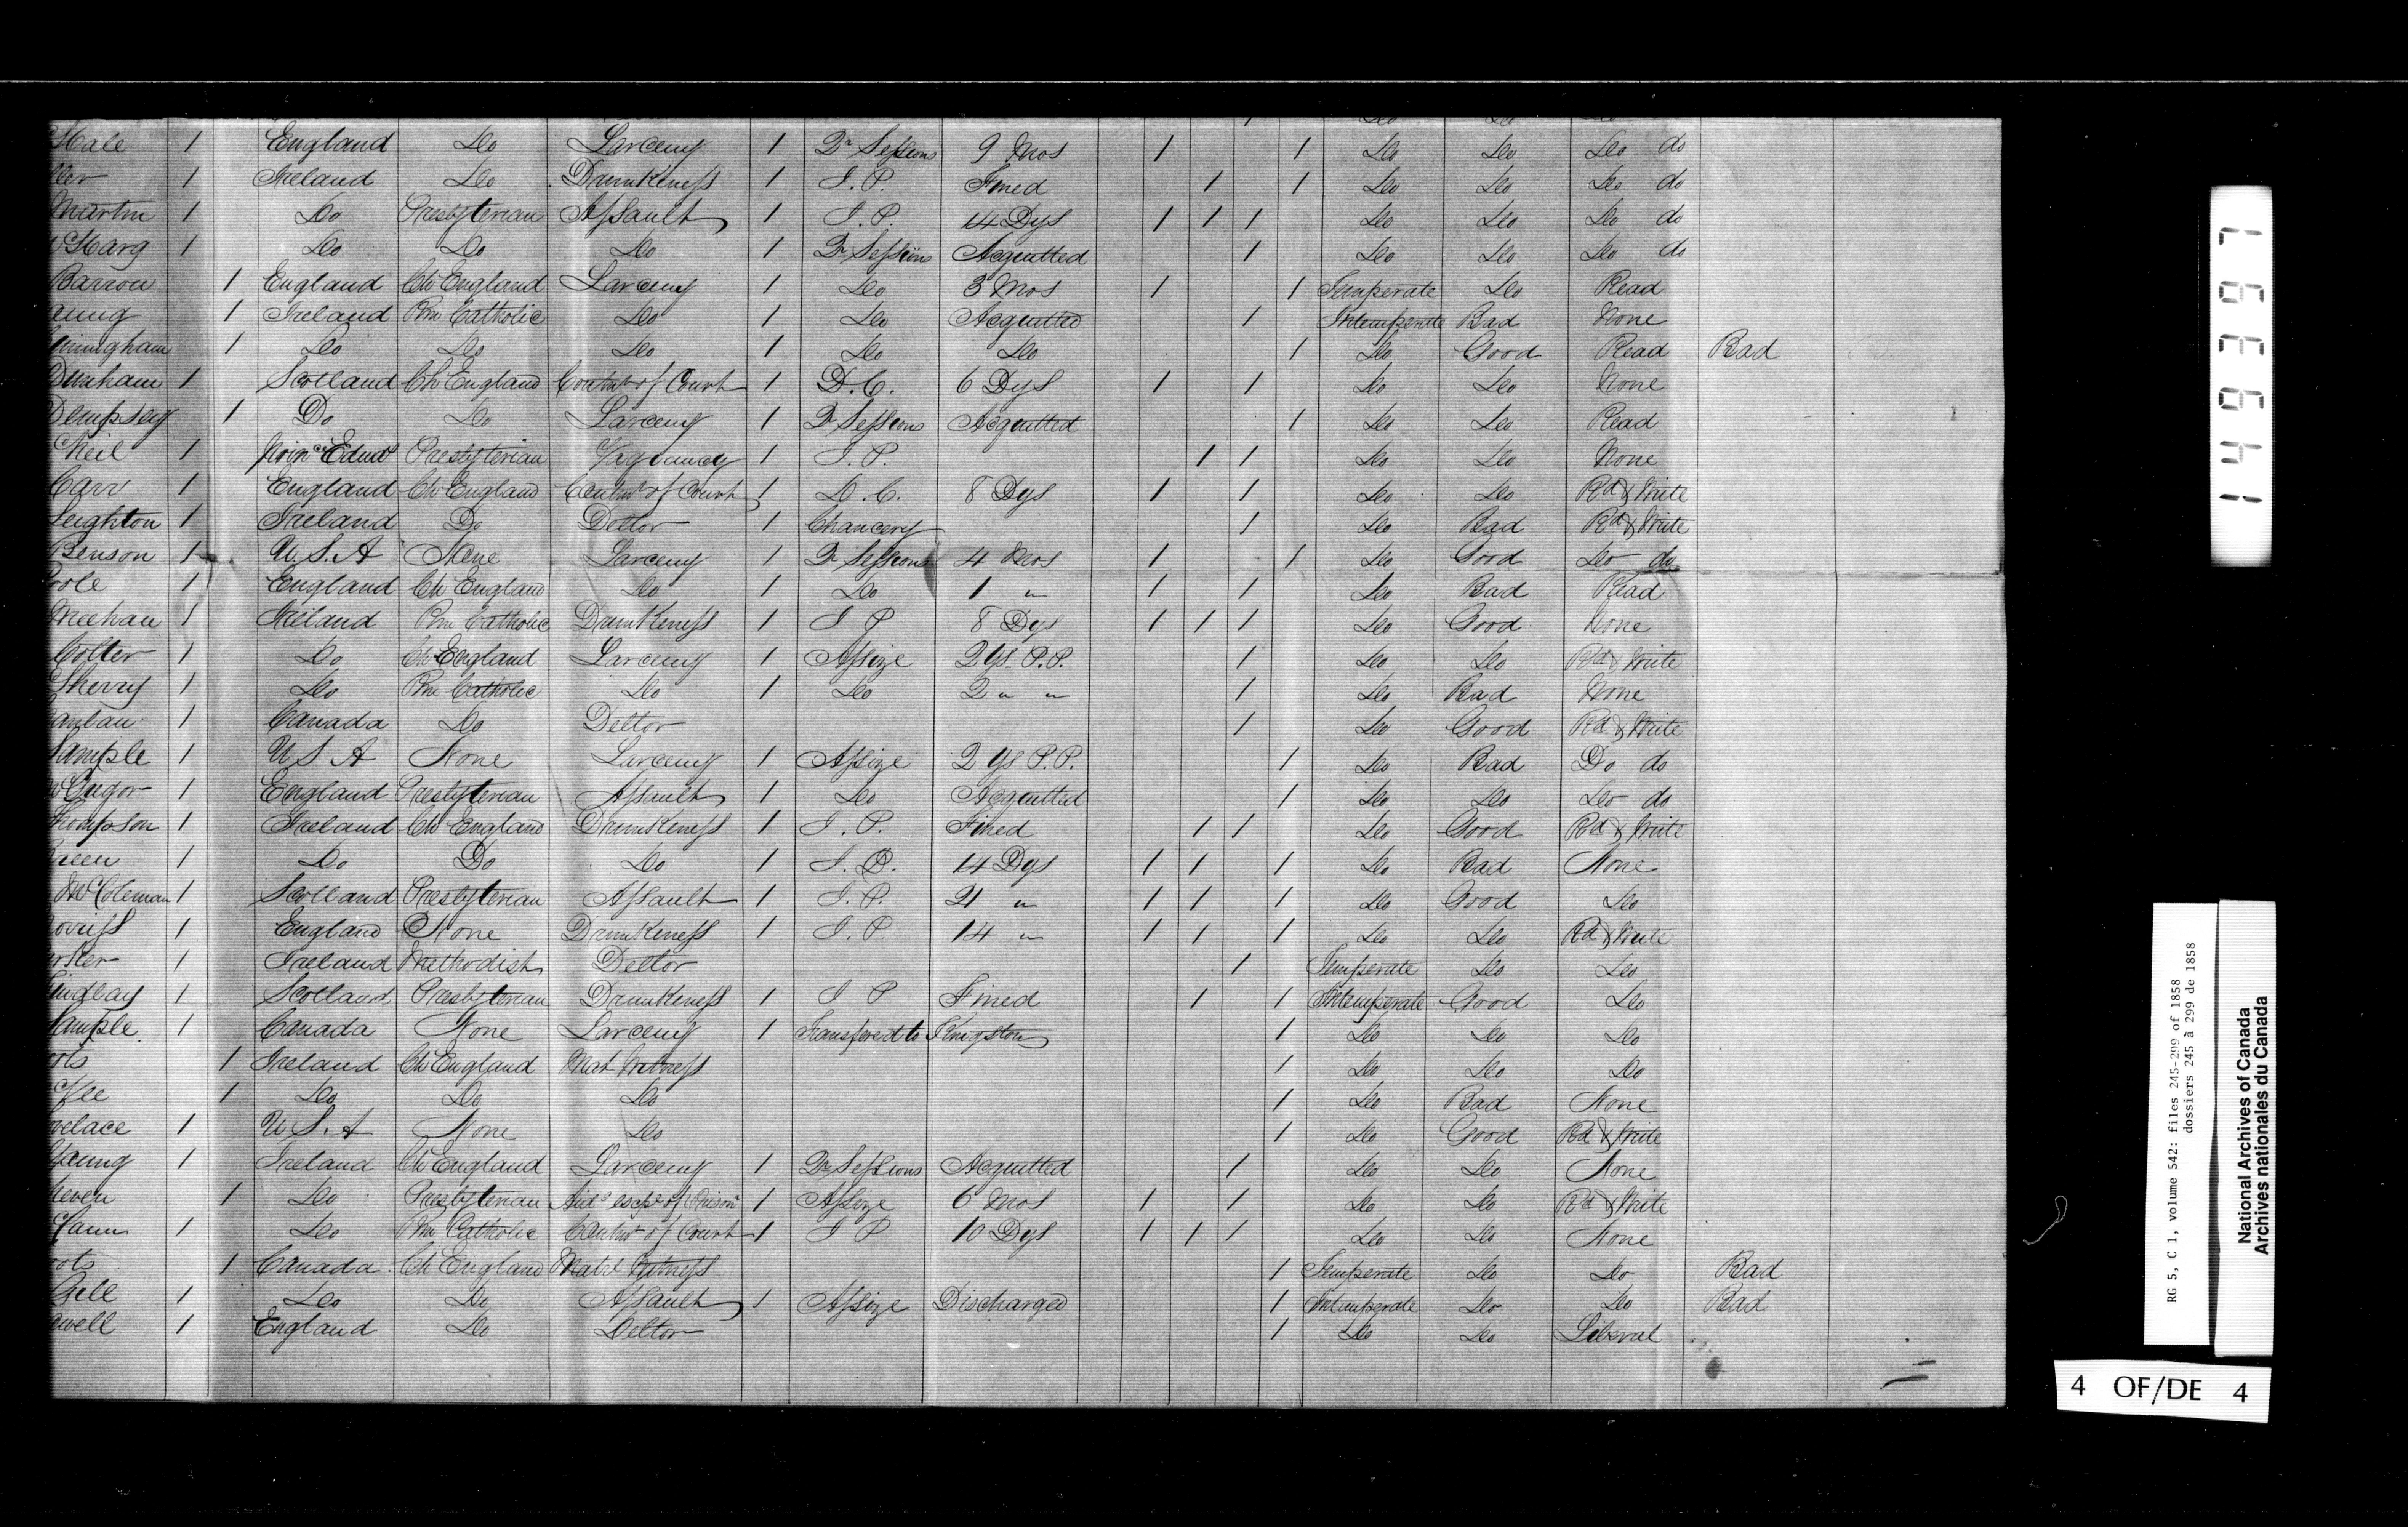 Hale 1 England Do Larceny 1 Qr Sessions 9 Mos 1 1 Do Do Do do
ller 1 Ireland Do Drunkeness 1 J. P. Fined 1 1 Do Do Do do
Martin 1 Do Presbyterian Assault 1 J. P. 14 Dys 1 1 1 Do Do Do do
Harg 1 Do Do Do 1 Qr Sessions Acquitted 1 Do Do Do do
Barron 1 England Ch England Larceny 1 Do 3 Mos 1 1 Temperate Do Read
1 Ireland Rm Catholic Do 1 Do Acquitted 1 Intemperate Bad None
nningham 1 Do Do Do 1 Do Do 1 Do Good Read Bad
Dunham 1 Scotland Ch England Contmt of Court 1 D. C. 6 Dys 1 1 Do Do None
Dempsey 1 Do Do Larceny 1 Qr Sessions Acquitted 1 Do Do Read
Neil 1 Prince Edwd Presbyterian Vagrancy 1 J. P. 1 1 Do Do None
Carr 1 England Ch England Contmt of Court 1 D. C. 8 Dys 1 1 Do Do Rd & Write
Leighton 1 Ireland Do Dettor 1 Chancery 1 Do Bad Rd & Write
Benson 1 U. S. A None Larceny 1 Qr Sessions 4 Mos 1 1 Do Good Do do
oole 1 England Ch England Do 1 Do 1 " 1 1 Do Bad Read
Meehan 1 Ireland Rm Catholic Drunkeness 1 J P 8 Dys 1 1 1 Do Good None
Cotter 1 Do Ch England Larceny 1 Assize 2 Ys P. P. 1 Do Do Rd & Write
Sherry 1 Do Rm Catholic Do 1 Do 2 " " 1 Do Bad None
anlan 1 Canada Do Dettor 1 Do Good Rd & Write
Sample 1 U S A None Larceny 1 Assize 2 Ys P. P. 1 Do Bad Do do
McGregor 1 England Presbyterian Assault 1 Do Acquitted 1 Do Do Do do
hompson 1 Ireland Ch England Drunkeness 1 J. P. Fined 1 1 Do Good Rd & Write
reen 1 Do Do Do 1 J. P. 14 Dys 1 1 1 Do Bad None
McColeman 1 Scotland Presbyterian Assault 1 J. P. 21 " 1 1 1 Do Good Do
orriss 1 England None Drunkeness 1 J. P. 14 " 1 1 1 Do Do Rd & Write
arker 1 Ireland Methodist Dettor 1 Temperate Do Do
indlay 1 Scotland Presbyterian Drunkeness 1 J P Fined 1 1 Intemperate Good Do
ample. 1 Canada None Larceny 1 Transfered to Kingston 1 Do Do Do
ots 1 Ireland Ch England Mat Witness 1 Do Do Do
1 Do Do Do 1 Do Bad None
ovelace 1 U S. A None Do 1 Do Good Rd & Write
Young 1 Ireland Ch England Larceny 1 Qr Sessions Acquitted 1 Do Do None
1 Do Presbyterian Aidg escpe of Prisonr 1 Assize 6 Mos 1 1 Do Do Rd & Write
Cann 1 Do Rm Catholic Contmt of Court 1 J P 10 Dys 1 1 1 Do Do None
oots 1 Canada Ch England Matrl Witness 1 Temperate Do Do Bad
Gell 1 Do Do Assault 1 Assize Discharged 1 Intemperate Do Do Bad
well 1 England Do Dettor 1 Do Do Liberal
149397
RG 5, C 1, volume 542: files 245-299 of 1858
dossiers 245 à 299 de 1858
National Archives of Canada
Archives nationales du Canada
4 OF/DE 4